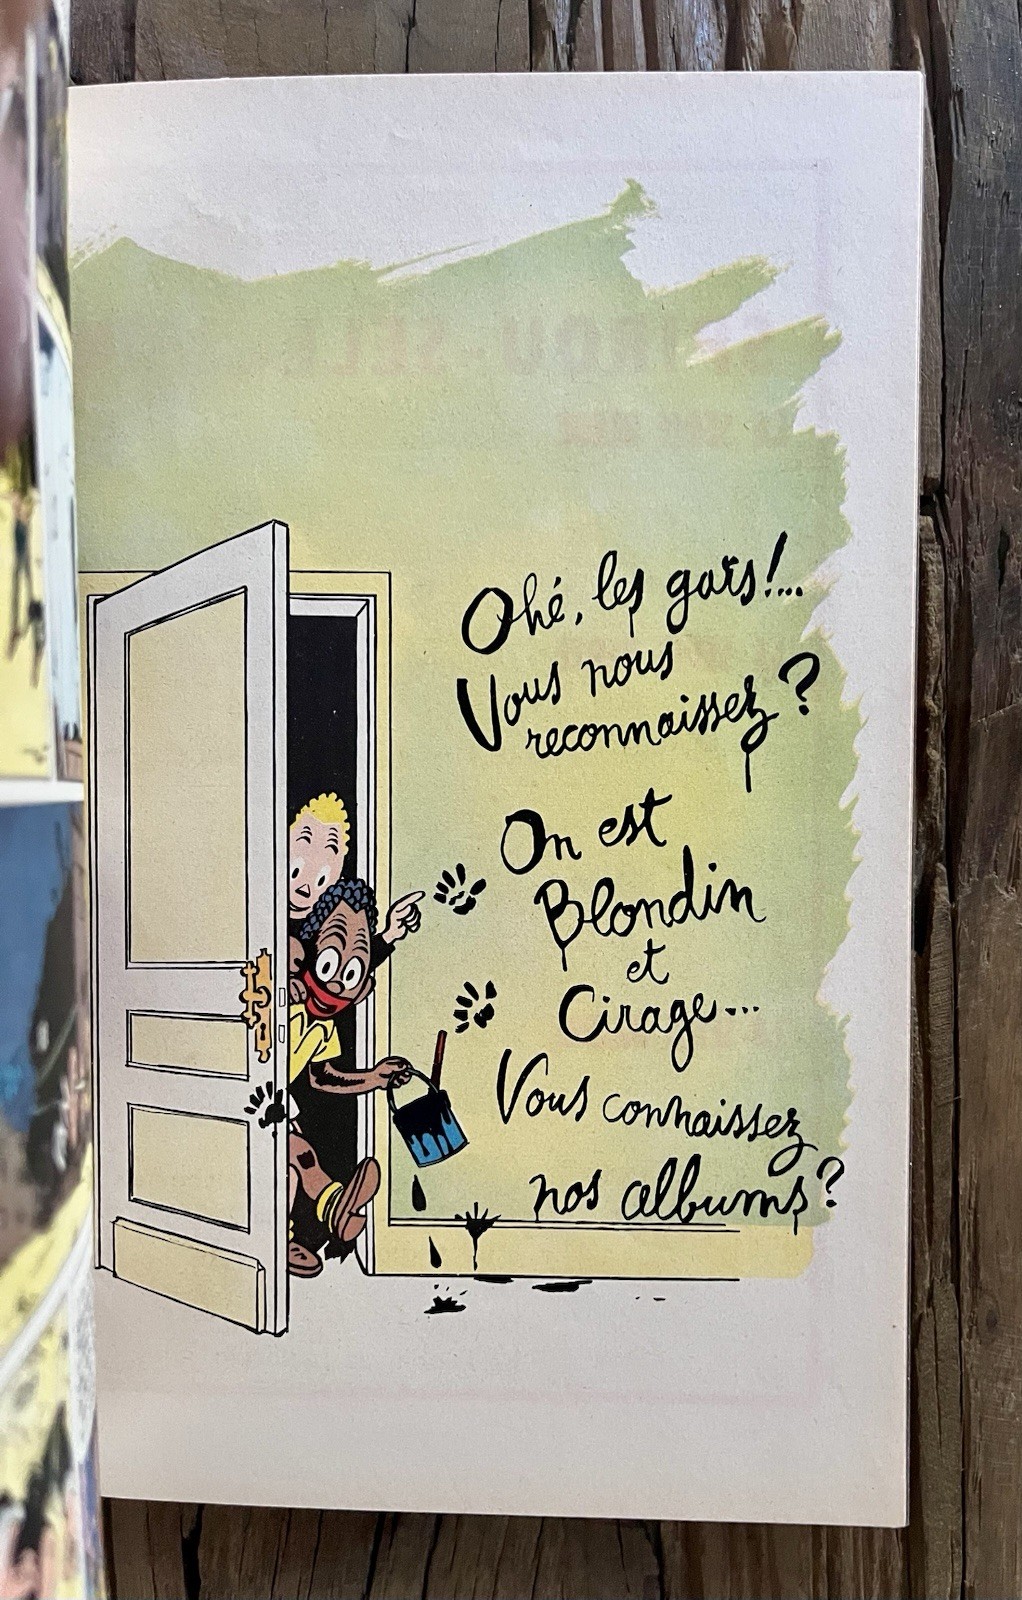 Ohé, les gars!...
Vous nous
reconnaissez?
On est
Blondin
et
Cirage...
Vous connaissez
nos albums?